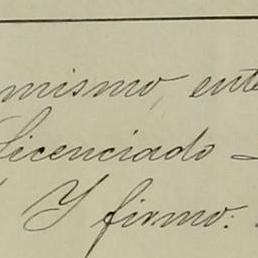 mismo, ente
Licenciado
Y firmo: